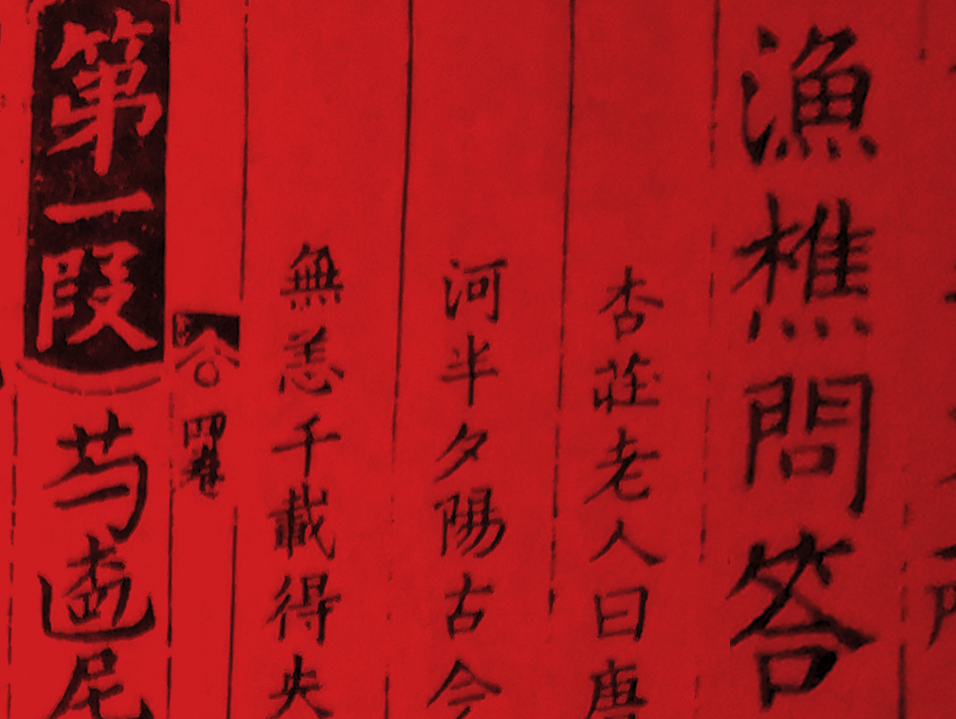 漁樵問答
杏莊老人曰唐
河半夕陽古今
無恙千載得失
第一段
芍